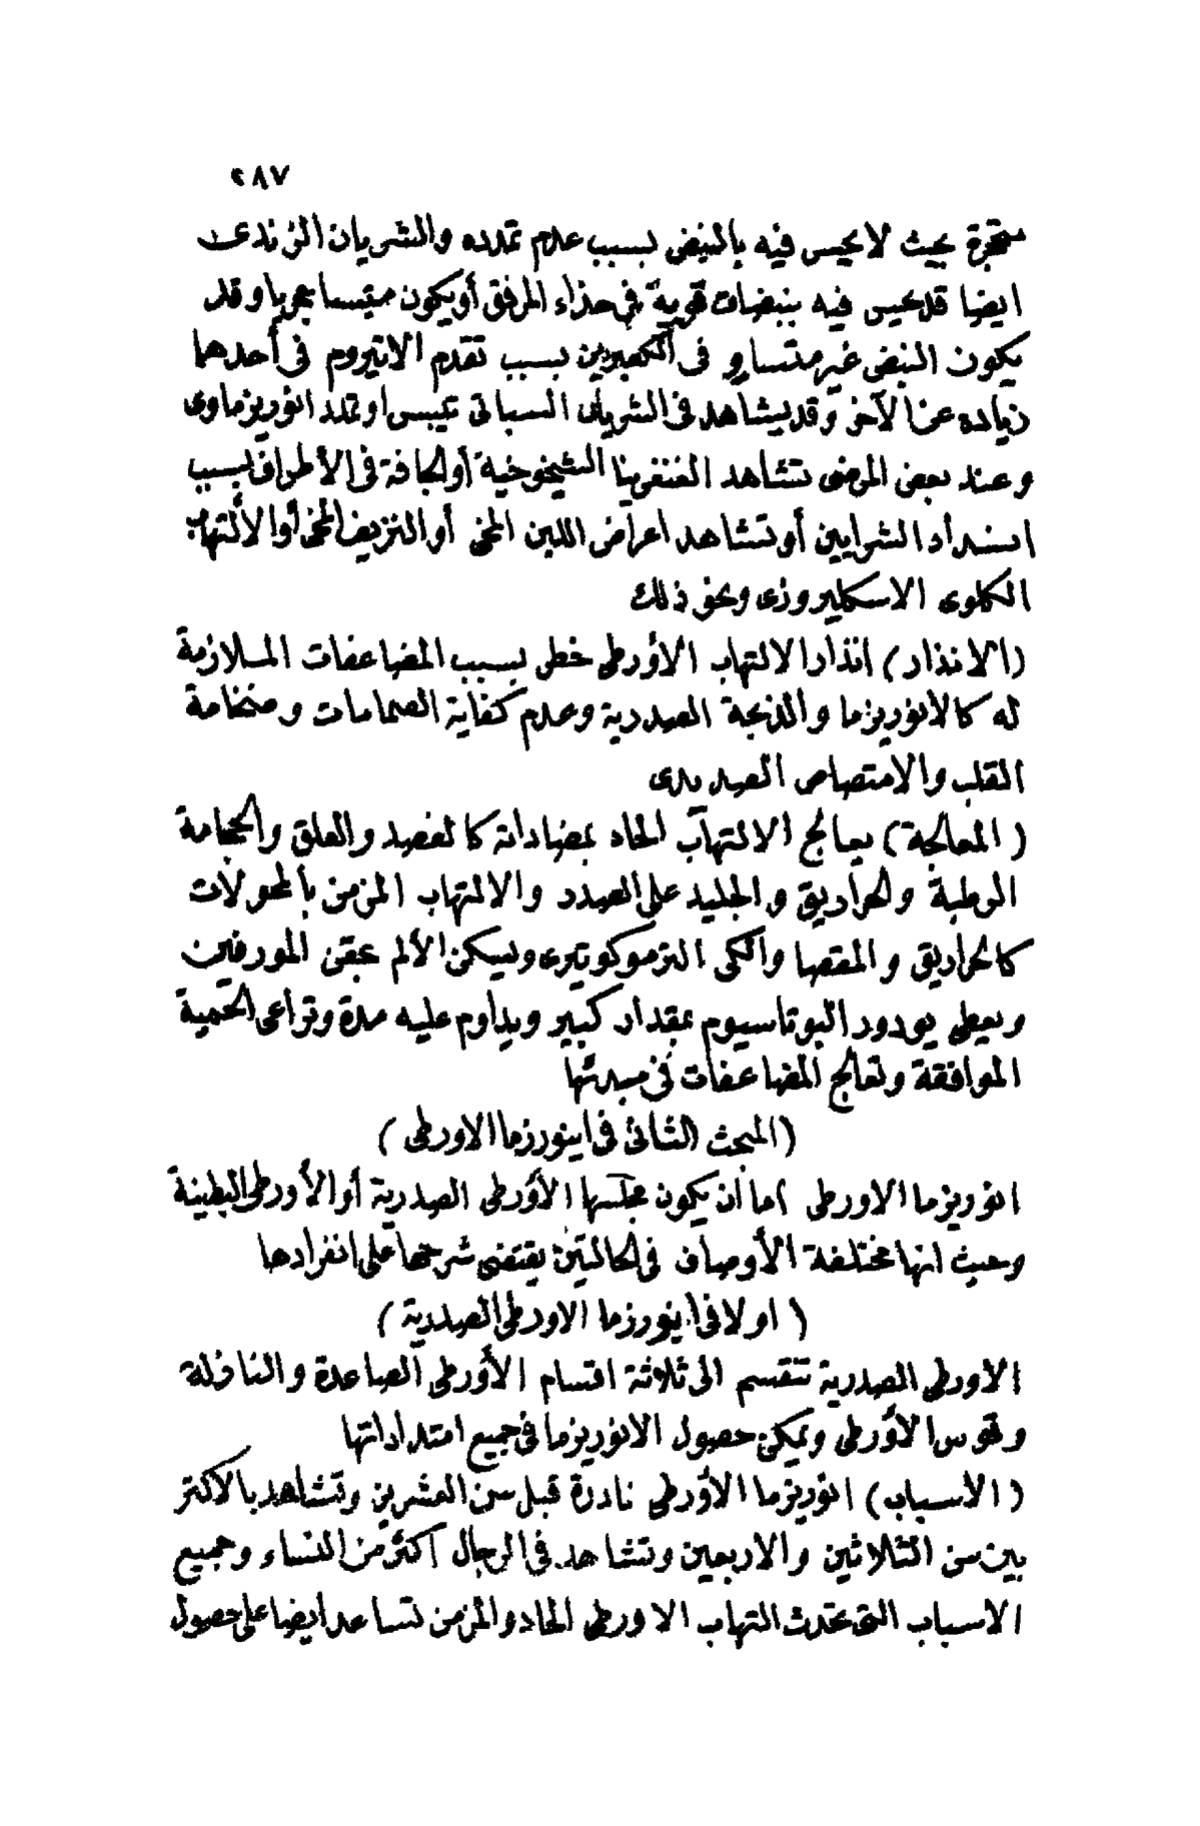 ٢٨٧
متحجرة بحيث لا يحس فيه بالنبض بسبب عدم تمدده والشريان الزندى
ايضا قد يحس فيه بنبضات قوية فى حذاء المرفق أو يكون متيبسا حجريا وقد
يكون النبض غير متساو فى الكعبريين بسبب تقدم الاتيروم فى أحدهما
زياده عن الآخر وقد يشاهد فى الشريان السباتى تيبس او تمدد انوريزماوى
وعند بعض المرضى تشاهد الغنغرينا الشيخوخية أو الجافة فى الأطراف بسبب
انسداد الشرايين أو تشاهد اعراض اللين المخى أو النزيف المخى أو الألتهاب
الكلوى الاسكليروزى ونحو ذلك
(الانذار) انذار الالتهاب الأورطى خطر بسبب المضاعفات الملازمة
له كالانوريزما والذبحة الصدرية وعدم كفاية الصمامات وضخامة
القلب والامتصاص الصديدى
(المعالجة) يعالج الالتهاب الحاد بمضاداته كالفصد والعلق والحجامة
الرطبة والحراريق والجليد على الصدر والالتهاب المزمن بالمحولات
كالحراريق والمقصا والكى الترموكوتيرى ويسكن الألم بحقن المورفين
ويعطى يودور البوتاسيوم بمقدار كبير ويداوم عليه مدة وتراعى الحمية
الموافقة وتعالج المضاعفات فى مبدئها
(المبحث الثانى فى اينورزما الاورطى)
انوريزما الاورطى اما أن يكون مجلسها الأورطى الصدرية أو الأورطى البطينة
وحيث انها مختلفة الأوصاف فى الحالتين يقتضى شرحها على انفرادها
(اولا فى اينورزما الاورطى الصدرية)
الاورطى الصدرية تنقسم الى ثلاثة اقسام الأورطى الصاعدة والنازلة
وقوس الأورطى ويمكن حصول الانوريزما فى جميع امتداداتها
(الأسباب) انوريزما الأورطى نادرة قبل سن العشرين وتشاهد بالاكثر
بين سن الثلاثين والاربعين وتشاهد فى الرجال اكثر من النساء وجميع
الاسباب التى تحدث التهاب الاورطى الحاد والمزمن تساعد ايضا على حصول